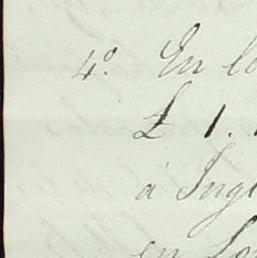 4º. En lo
£ 1.
á Ingl
en Lon